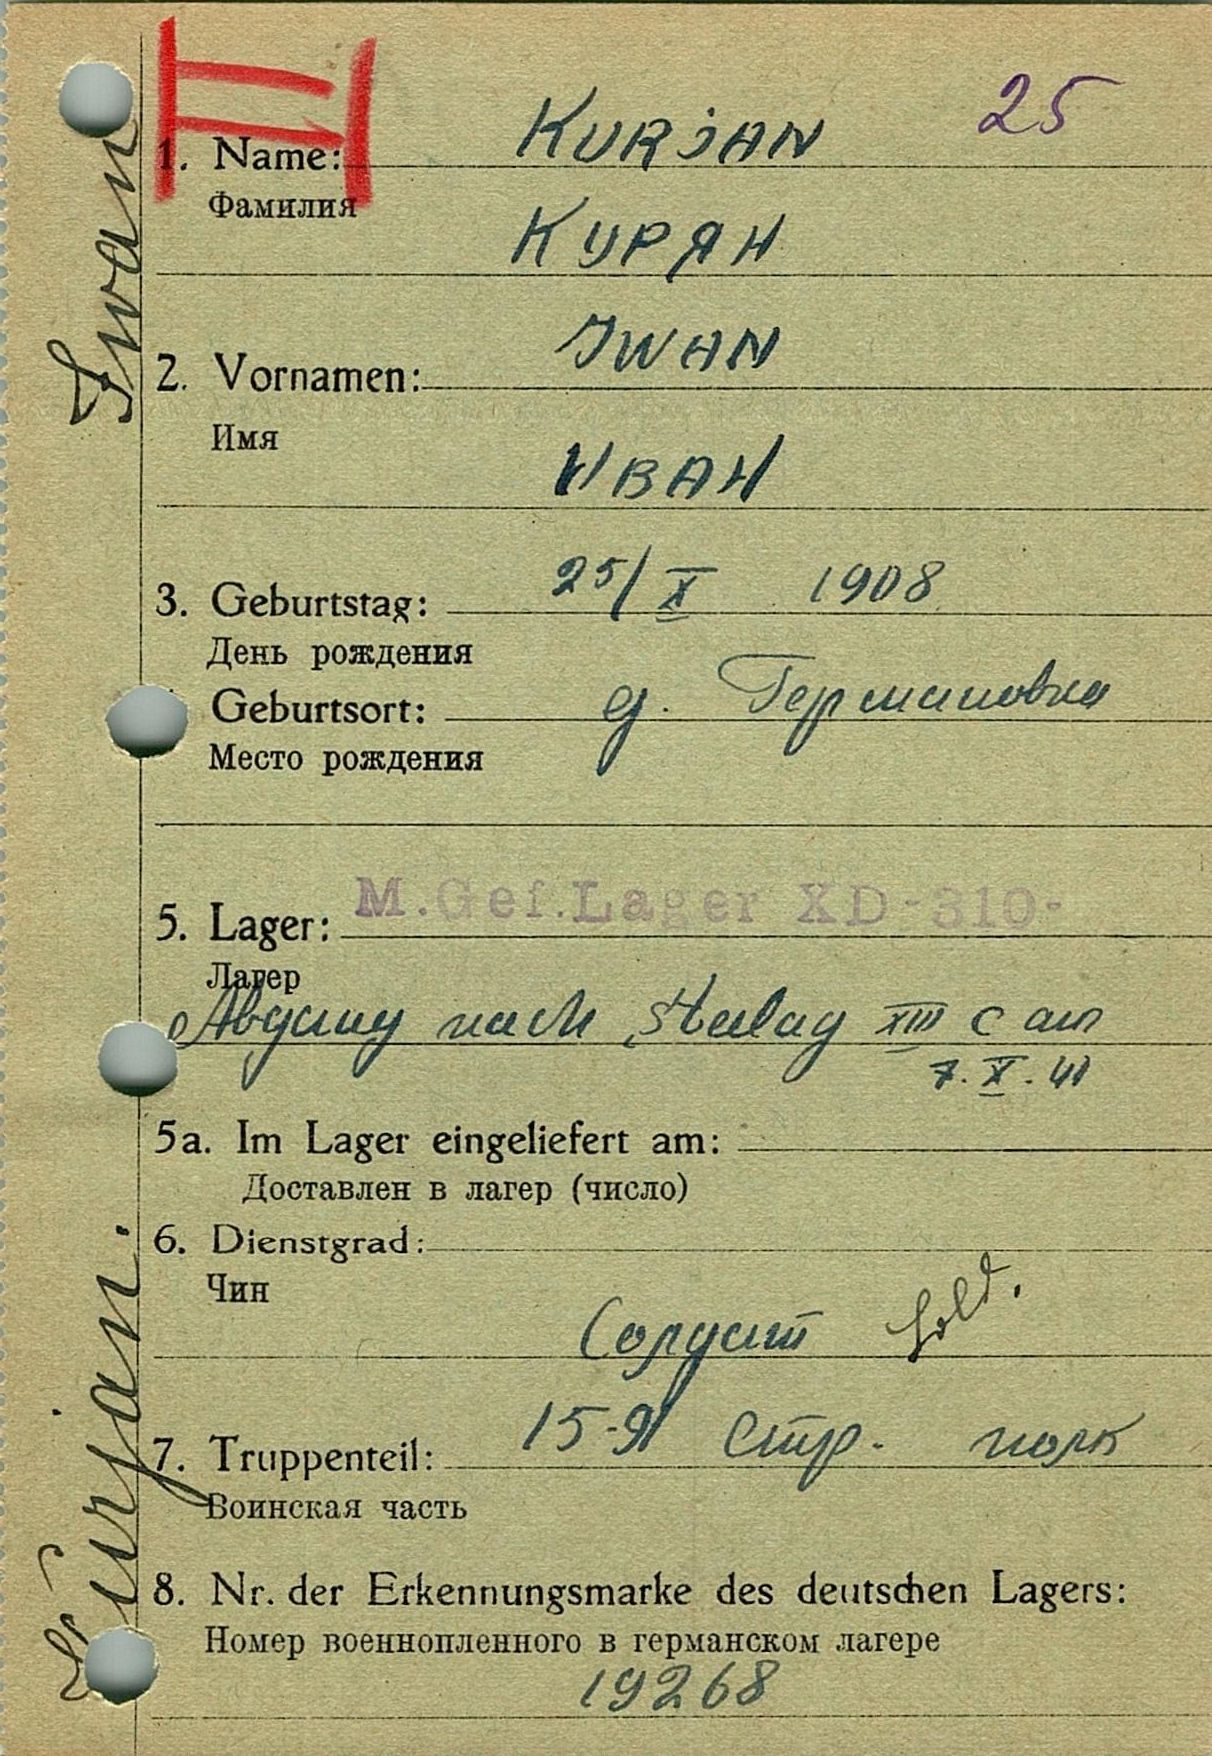 25
1. Name: KURJAN
Фамилия
КУРЯН
2. Vornamen: IWAN
Имя
ИВАН
3. Geburtstag: 25/X 1908
День рождения
Geburtsort: д. Германовка
Место рождения
5. Lager: M.Gef.Lager XD-310-
Лагер
Abgang nach Stalag XIII C am
7.X.41
5a. Im Lager eingeliefert am:
Доставлен в лагер (число)
6. Dienstgrad:
Чин
Солдат Sold.
7. Truppenteil: 15-й стр. полк
Воинская часть
8. Nr. der Erkennungsmarke des deutschen Lagers:
Номер военнопленного в германском лагере
19268
Kurjan. Iwan